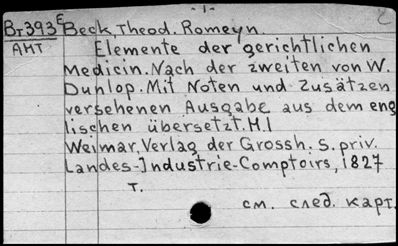 - 1 -
Вт393Е Beck, Theod. Romeyn.
АМТ Elemente der gerichtlichen
Medicin. Nach der zweiten von W.
Dunlop. Mit Noten und Zusätzen
versehenen Ausgabe aus dem eng
lischen übersetzt. H. I
Weimar, Verlag der Grossh. S. priv.
Landes-Industrie-Comptoirs, 1827
т.
см. след. карт.